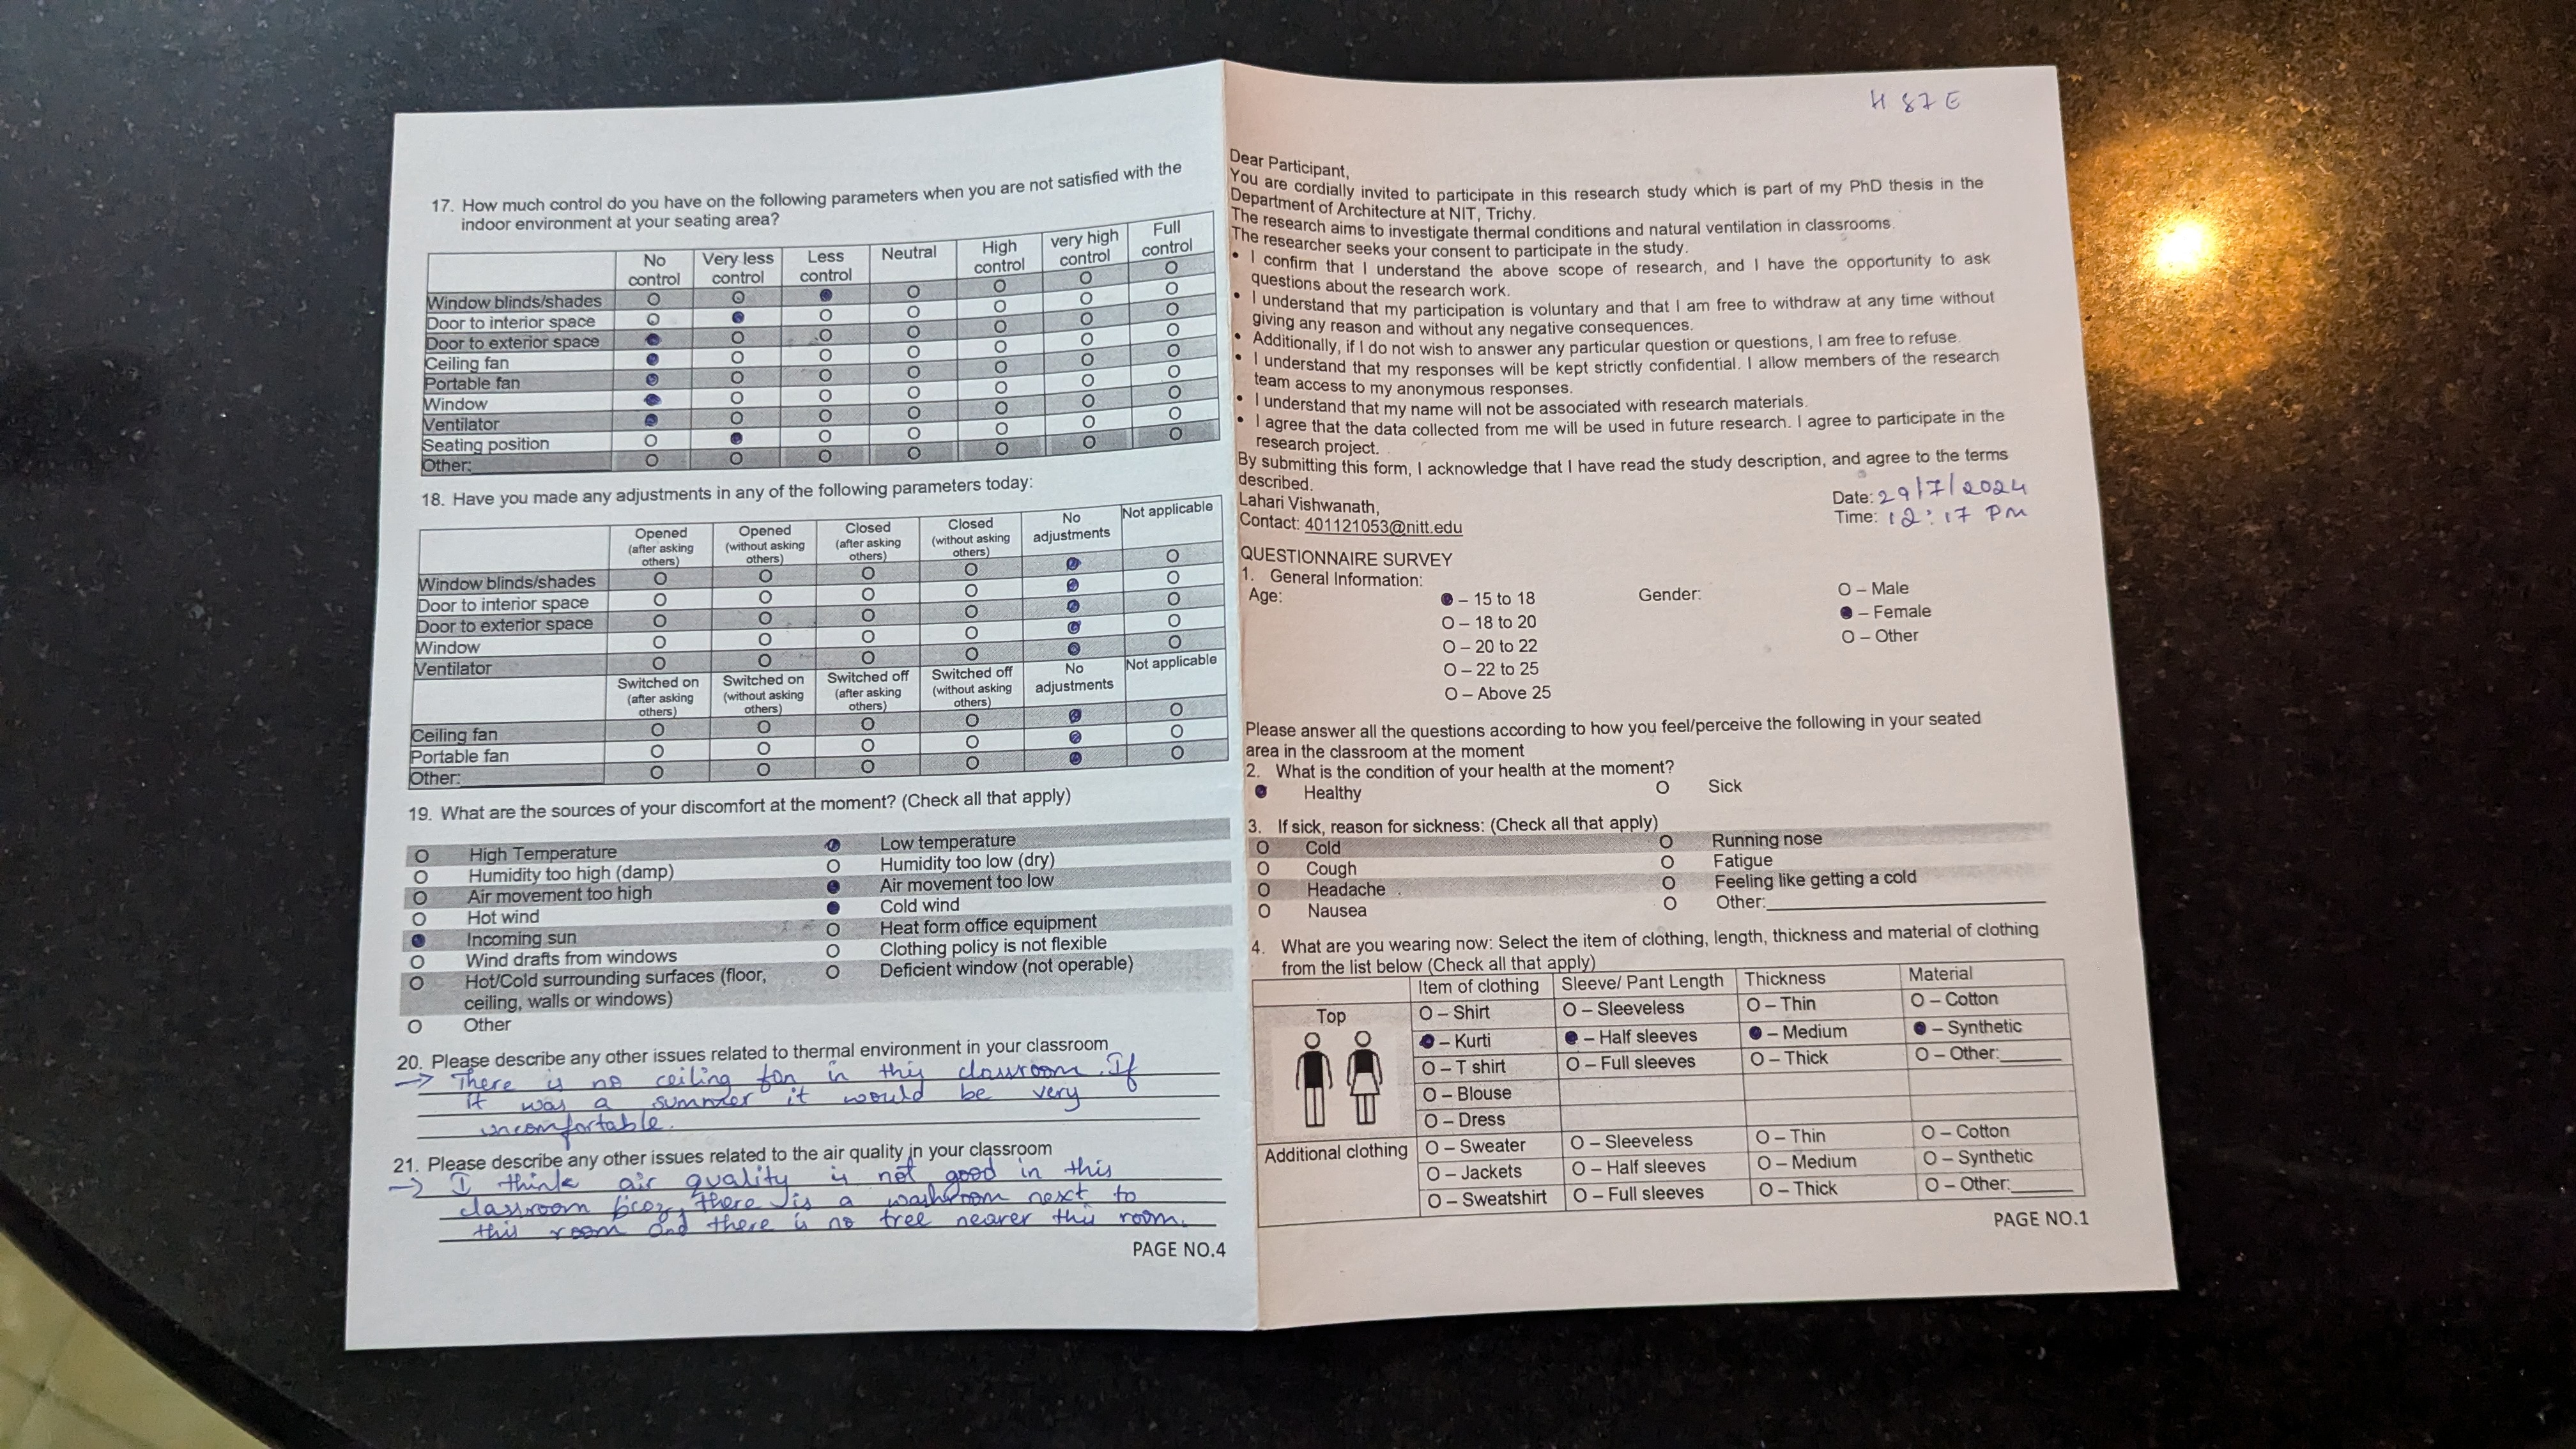 17. How much control do you have on the following parameters when you are not satisfied with the
indoor environment at your seating area?
No control Very less control Less control Neutral High control very high control Full control
Window blinds/shades O O ● O O O O
Door to interior space O ● O O O O O
Door to exterior space ● O O O O O O
Ceiling fan ● O O O O O O
Portable fan ● O O O O O O
Window ● O O O O O O
Ventilator ● O O O O O O
Seating position O ● O O O O O
Other: O O O O O O O
18. Have you made any adjustments in any of the following parameters today:
Opened (after asking others) Opened (without asking others) Closed (after asking others) Closed (without asking others) No adjustments Not applicable
Window blinds/shades O O O O ● O
Door to interior space O O O O ● O
Door to exterior space O O O O ● O
Window O O O O ● O
Ventilator O O O O ● O
Switched on (after asking others) Switched on (without asking others) Switched off (after asking others) Switched off (without asking others) No adjustments Not applicable
Ceiling fan O O O O ● O
Portable fan O O O O ● O
Other: O O O O ● O
19. What are the sources of your discomfort at the moment? (Check all that apply)
O High Temperature ● Low temperature
O Humidity too high (damp) O Humidity too low (dry)
O Air movement too high ● Air movement too low
O Hot wind ● Cold wind
● Incoming sun O Heat form office equipment
O Wind drafts from windows O Clothing policy is not flexible
O Hot/Cold surrounding surfaces (floor, O Deficient window (not operable)
ceiling, walls or windows)
O Other
20. Please describe any other issues related to thermal environment in your classroom
→ There is no ceiling fan in this classroom. If
it was a summer it would be very
uncomfortable.
21. Please describe any other issues related to the air quality in your classroom
→ I think air quality is not good in this
classroom bcoz, there is a washroom next to
this room and there is no tree nearer this room.
PAGE NO.4
H 87 E
Dear Participant,
You are cordially invited to participate in this research study which is part of my PhD thesis in the
Department of Architecture at NIT, Trichy.
The research aims to investigate thermal conditions and natural ventilation in classrooms.
The researcher seeks your consent to participate in the study.
• I confirm that I understand the above scope of research, and I have the opportunity to ask
questions about the research work.
• I understand that my participation is voluntary and that I am free to withdraw at any time without
giving any reason and without any negative consequences.
• Additionally, if I do not wish to answer any particular question or questions, I am free to refuse.
• I understand that my responses will be kept strictly confidential. I allow members of the research
team access to my anonymous responses.
• I understand that my name will not be associated with research materials.
• I agree that the data collected from me will be used in future research. I agree to participate in the
research project.
By submitting this form, I acknowledge that I have read the study description, and agree to the terms
described.
Lahari Vishwanath,
Contact: 401121053@nitt.edu
Date: 29/7/2024
Time: 12:17 PM
QUESTIONNAIRE SURVEY
1. General Information:
Age: ● – 15 to 18 Gender: O – Male
O – 18 to 20 ● – Female
O – 20 to 22 O – Other
O – 22 to 25
O – Above 25
Please answer all the questions according to how you feel/perceive the following in your seated
area in the classroom at the moment
2. What is the condition of your health at the moment?
● Healthy O Sick
3. If sick, reason for sickness: (Check all that apply)
O Cold O Running nose
O Cough O Fatigue
O Headache O Feeling like getting a cold
O Nausea O Other:
4. What are you wearing now: Select the item of clothing, length, thickness and material of clothing
from the list below (Check all that apply)
Item of clothing Sleeve/ Pant Length Thickness Material
Top O – Shirt O – Sleeveless O – Thin O – Cotton
● – Kurti ● – Half sleeves ● – Medium ● – Synthetic
O – T shirt O – Full sleeves O – Thick O – Other:
O – Blouse
O – Dress
Additional clothing O – Sweater O – Sleeveless O – Thin O – Cotton
O – Jackets O – Half sleeves O – Medium O – Synthetic
O – Sweatshirt O – Full sleeves O – Thick O – Other:
PAGE NO.1